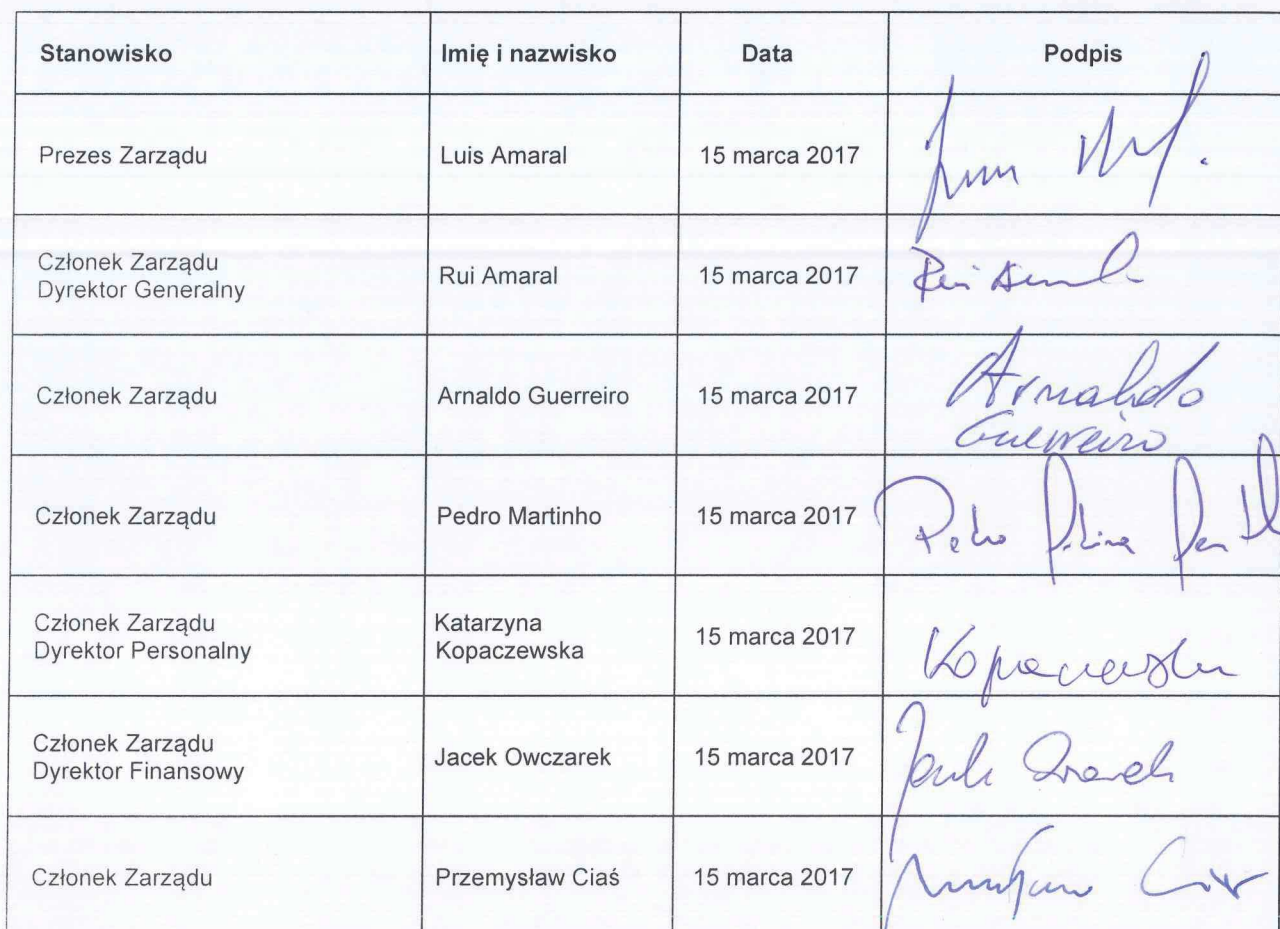 Stanowisko Imię i nazwisko Data Podpis
Prezes Zarządu Luis Amaral 15 marca 2017
Członek Zarządu
Dyrektor Generalny
Rui Amaral 15 marca 2017
Członek Zarządu Arnaldo Guerreiro 15 marca 2017 Arnaldo
Guerreiro
Członek Zarządu Pedro Martinho 15 marca 2017 Pedro
Członek Zarządu
Dyrektor Personalny
Katarzyna
Kopaczewska
15 marca 2017 Kopaczewska
Członek Zarządu
Dyrektor Finansowy
Jacek Owczarek 15 marca 2017
Członek Zarządu Przemysław Ciaś 15 marca 2017